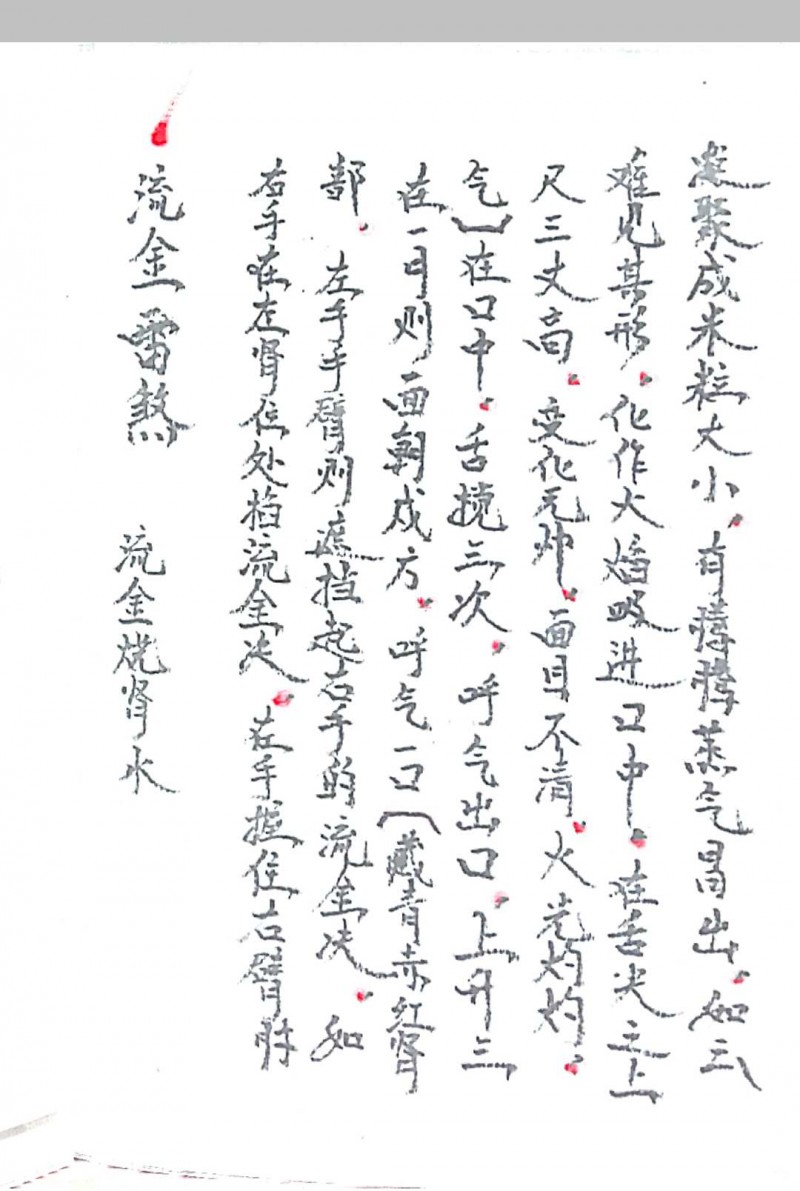 流金雷煞 流金烧肾水
右手在左肾位处掐流金决。左手握住右臂肘
部。左手手臂则遮挡起右手的流金决。如
在一月则面朝戌方。呼气一口(藏青赤红肾
气)在口中。舌搅三次。呼气出口。上升三
尺三丈高。变化无。面目不清。火光灼灼。
难见其形。化作大焰吸进口中。在舌尖之上
凝聚成米粒大小。有腾腾蒸气冒出。如云